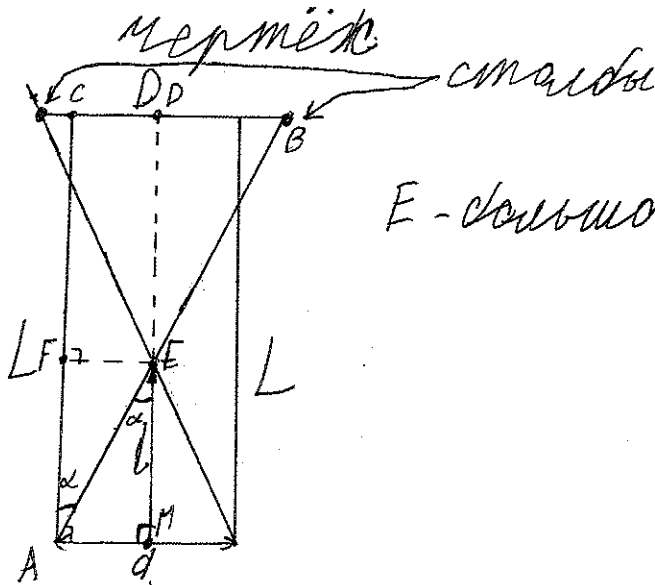 чертёж
столбы
C D D B
E - большо
L F E L
α α l
A M d